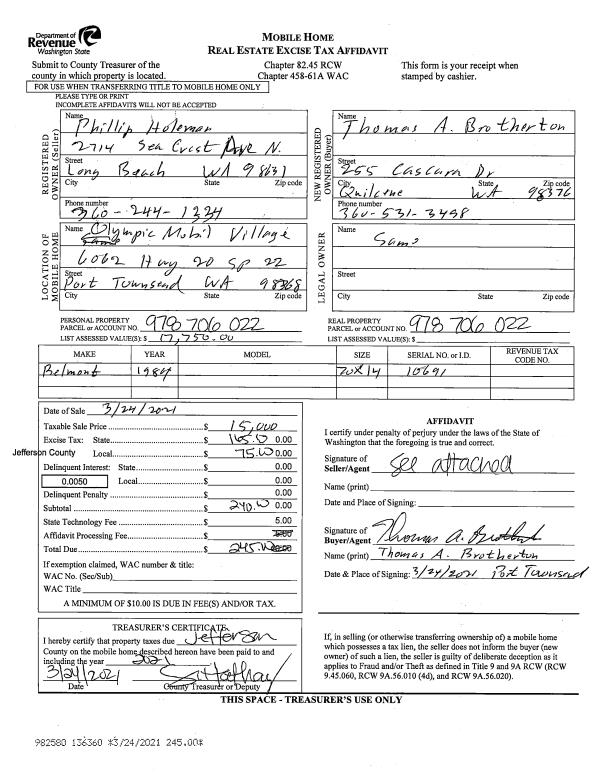 Department of
Revenue
Washington State
MOBILE HOME
REAL ESTATE EXCISE TAX AFFIDAVIT
Submit to County Treasurer of the
county in which property is located.
Chapter 82.45 RCW
Chapter 458-61A WAC
This form is your receipt when
stamped by cashier.
FOR USE WHEN TRANSFERRING TITLE TO MOBILE HOME ONLY
PLEASE TYPE OR PRINT
INCOMPLETE AFFIDAVITS WILL NOT BE ACCEPTED
REGISTERED OWNER (Seller)
Name
Phillip Holeman
2714 Sea Crest Ave N.
Street
Long Beach WA 98631
City State Zip code
Phone number
360-244-1224
NEW REGISTERED OWNER (Buyer)
Name
Thomas A. Brotherton
Street
255 Cascara Dr
City State Zip code
Quilcene WA 98376
Phone number
360-531-3498
LOCATION OF MOBILE HOME
Name
Olympic Mobil Village
6062 Hwy 20 Sp 22
Street
Port Townsend WA 98368
City State Zip code
LEGAL OWNER
Name
Same
Street
City State Zip code
PERSONAL PROPERTY
PARCEL or ACCOUNT NO. 978 706 022
LIST ASSESSED VALUE(S): $ 17,750.00
REAL PROPERTY
PARCEL or ACCOUNT NO. 978 706 022
LIST ASSESSED VALUE(S): $
MAKE YEAR MODEL SIZE SERIAL NO. or I.D. REVENUE TAX CODE NO.
Belmont 1984 70X14 10691
Date of Sale 3/24/2021
Taxable Sale Price $ 15,000
Excise Tax: State $ 165.00 0.00
Jefferson County Local $ 75.00 0.00
Delinquent Interest: State $ 0.00
0.0050 Local $ 0.00
Delinquent Penalty $ 0.00
Subtotal $ 240.00 0.00
State Technology Fee $ 5.00
Affidavit Processing Fee $
Total Due $ 245.00
If exemption claimed, WAC number & title:
WAC No. (Sec/Sub)
WAC Title
A MINIMUM OF $10.00 IS DUE IN FEE(S) AND/OR TAX.
AFFIDAVIT
I certify under penalty of perjury under the laws of the State of
Washington that the foregoing is true and correct.
Signature of
Seller/Agent See attached
Name (print)
Date and Place of Signing:
Signature of
Buyer/Agent Thomas A. Brotherton
Name (print) Thomas A. Brotherton
Date & Place of Signing: 3/24/2021 Port Townsend
TREASURER'S CERTIFICATE
I hereby certify that property taxes due Jefferson
County on the mobile home described hereon have been paid to and
including the year 2021
3/24/2021
Date County Treasurer or Deputy
If, in selling (or otherwise transferring ownership of) a mobile home
which possesses a tax lien, the seller does not inform the buyer (new
owner) of such a lien, the seller is guilty of deliberate deception as it
applies to Fraud and/or Theft as defined in Title 9 and 9A RCW (RCW
9.45.060, RCW 9A.56.010 (4d), and RCW 9A.56.020).
THIS SPACE - TREASURER'S USE ONLY
982580 136360 *3/24/2021 245.00*